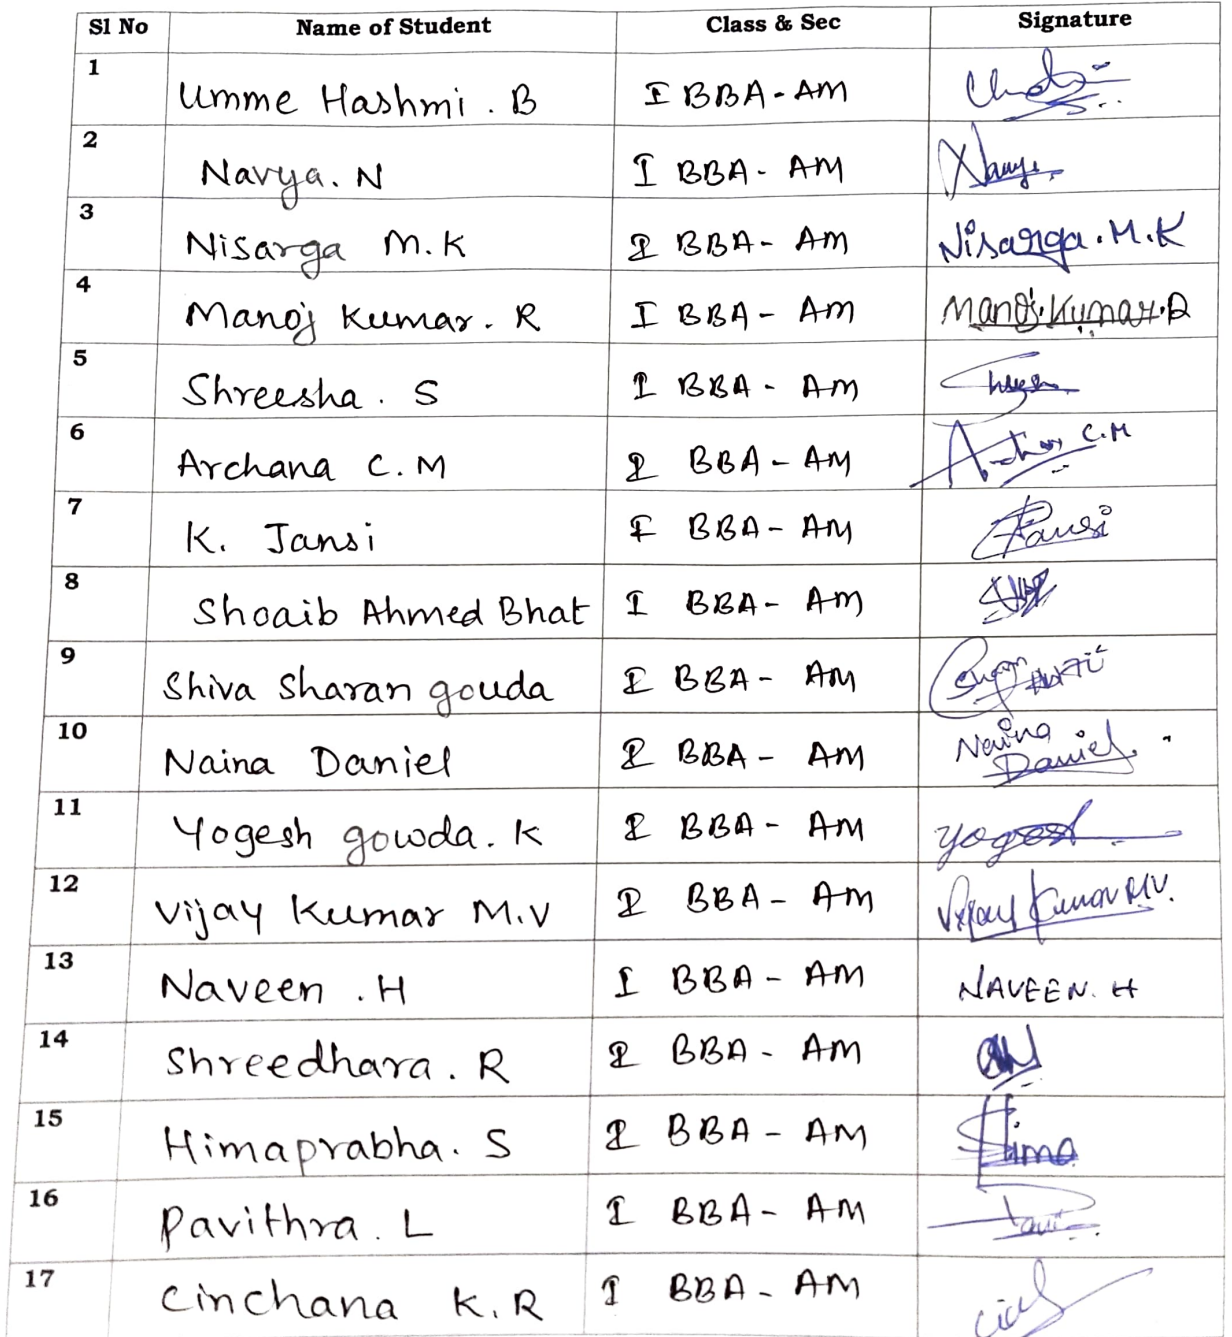 Sl No Name of Student Class & Sec Signature
1 Umme Hashmi . B I BBA - AM
2 Navya. N I BBA - AM
3 Nisarga M.K I BBA - AM Nisarga.M.K
4 Manoj Kumar. R I BBA - AM Manoj.Kumar.R
5 Shreesha . S I BBA - AM
6 Archana C.M I BBA - AM C.M
7 K. Jansi I BBA - AM Jansi
8 Shoaib Ahmed Bhat I BBA - AM
9 Shiva Sharan gouda I BBA - AM
10 Naina Daniel I BBA - AM Naina Daniel
11 Yogesh gowda. K I BBA - AM Yogesh
12 Vijay Kumar M.V I BBA - AM Vijay Kumar M.V.
13 Naveen . H I BBA - AM NAVEEN. H
14 Shreedhara . R I BBA - AM
15 Himaprabha. S I BBA - AM Hima
16 Pavithra . L I BBA - AM
17 Cinchana K.R I BBA - AM